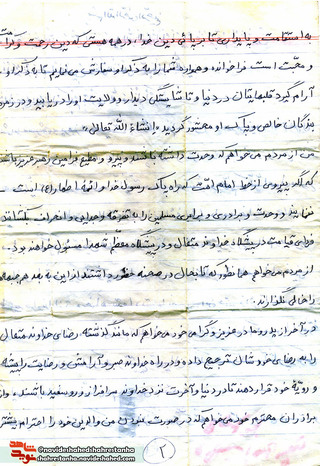 به استقامت و پایداری تا برپائی دین خدا، در همه هستی که دین رحمت و کرامت
و محبت است فراخوانده و همواره شما را به ذکر او سفارش می نمایم تا به ذکر او
آرام گیرد قلبهایتان در دنیا و تا شایستگی دیدار و ولایت او را دریابید و در زمره
بندگان خالص و پاک او محشور گردید «انشاءالله تعالی»
من از مردم می خواهم که وحدت داشته باشند و پیرو و مطیع فرامین رهبر عزیز باشند
که اگر پیروی از خط امام امت که راه پاک رسول خدا و ائمه اطهار(ع) است
نمایند و وحدت و برادری و برابری مسلمین را به تفرقه و جدایی و انحراف بکشانند
فردای قیامت در پیشگاه خداوند متعال و در پیشگاه معظم شهدا مسئول خواهند بود
از مردم می خواهم همانطور که تا بحال در صحنه حضور داشتند از این به بعد هم صحنه
را خالی نگذارند.
در آخر از پدر و مادر عزیز و گرامی خود می خواهم که مانند گذشته، رضای خداوند متعال
را به رضای خودشان ترجیح داده و در راه خداوند صبر و آرامش و رضایت را پیشه
و رویه خود قرار دهند تا در دنیا و آخرت نزد خداوند سرافراز و روسفید باشند. و از
برادران محترم خود می خواهم که در صورت نبودن من والدین خود را احترام بیشتر
۲
@navideshahedshahrestanha
shahrestanha.navideshahed.com